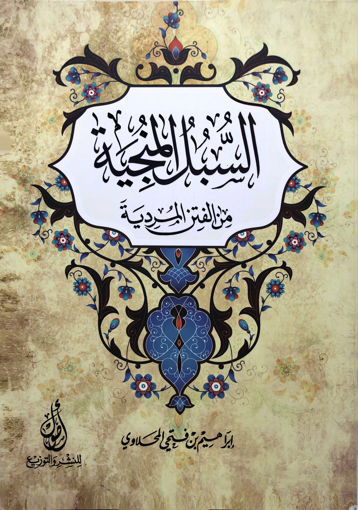 السُّبُلُ المُنْجِيَة
مِنَ الفِتَنِ المُرْدِيَةِ
إبراهيم بن فتحي المحلاوي
للنشر والتوزيع